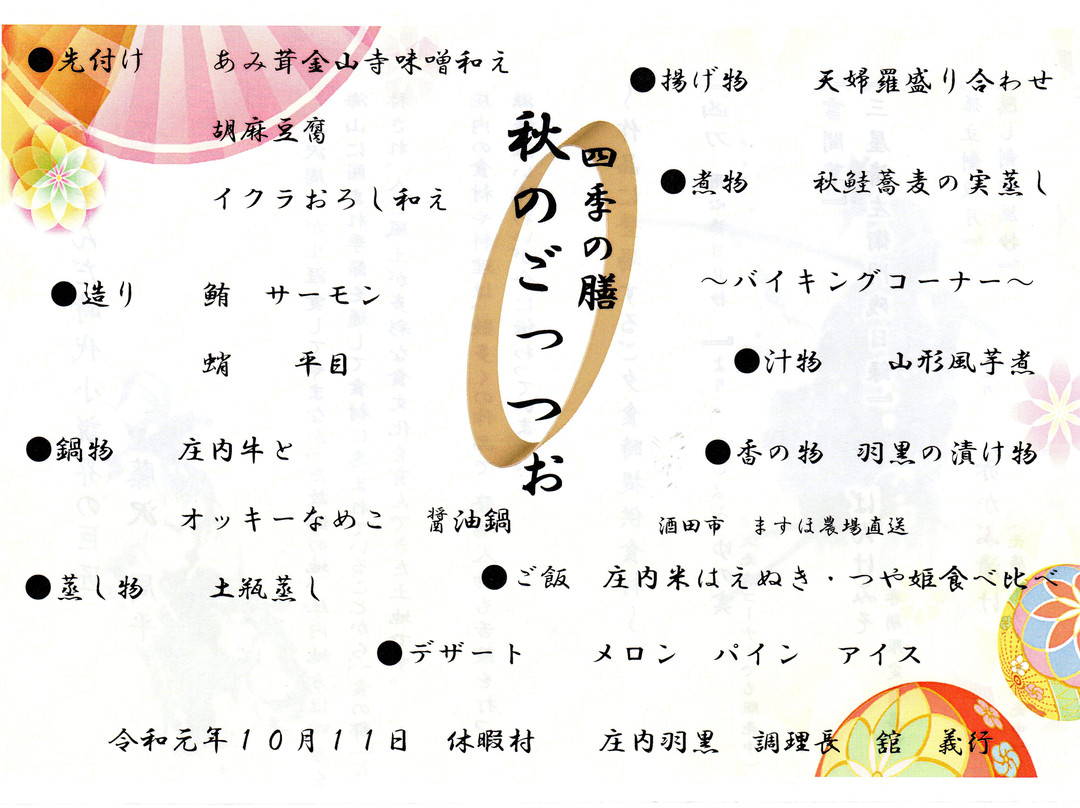 四季の膳
秋のごっつお
●先付け　あみ茸金山寺味噌和え
胡麻豆腐
イクラおろし和え
●造り　鮪　サーモン
蛸　平目
●鍋物　庄内牛と
オッキーなめこ　醤油鍋
●蒸し物　土瓶蒸し
●揚げ物　天婦羅盛り合わせ
●煮物　秋鮭蕎麦の実蒸し
～バイキングコーナー～
●汁物　山形風芋煮
●香の物　羽黒の漬け物
酒田市　ますほ農場直送
●ご飯　庄内米はえぬき・つや姫食べ比べ
●デザート　メロン　パイン　アイス
令和元年１０月１１日　休暇村　庄内羽黒　調理長　舘　義行